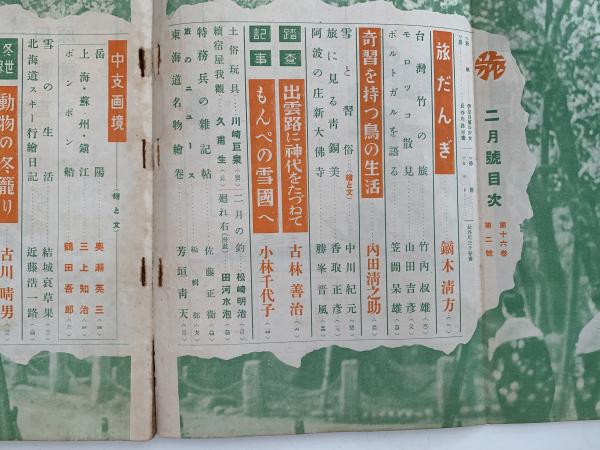 旅
二月號目次
第十六卷
第二號
旅だんぎ 鏑木清方
台灣竹の旅 竹內叔雄
モロッコ散見 山田吉彥
ポルトガルを語る 笠間杲雄
奇習を持つ鳥の生活 內田淸之助
雪と習俗(繪と文) 中川紀元
旅に見る靑銅美 香取正彥
阿波の庄新大佛寺 勝峯晋風
踏查記事
出雲路に神代をたづねて 古林善治
もんぺの雪國へ 小林千代子
土俗玩具 川崎巨泉
二月の釣 松崎明治
續宿屋我觀 久甫生
廻れ右 田河水泡
特務兵の雜記帖 佐藤正衞
旅のニュース 編輯部
東海道名物繪卷 芳垣靑天
中支画境(繪と文)
岳陽 奧瀨英三
上海・蘇州・鎭江 三上知治
ポンポン船 鶴田吾郎
雪の生活 結城哀草果
北海道スキー行繪日記 近藤浩一路
動物の冬籠り 古川晴男